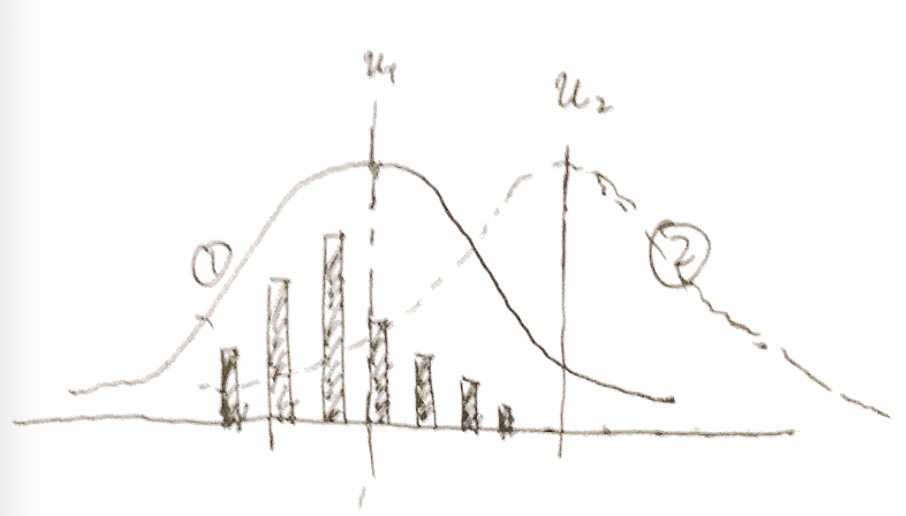 u₁
u₂
①
②